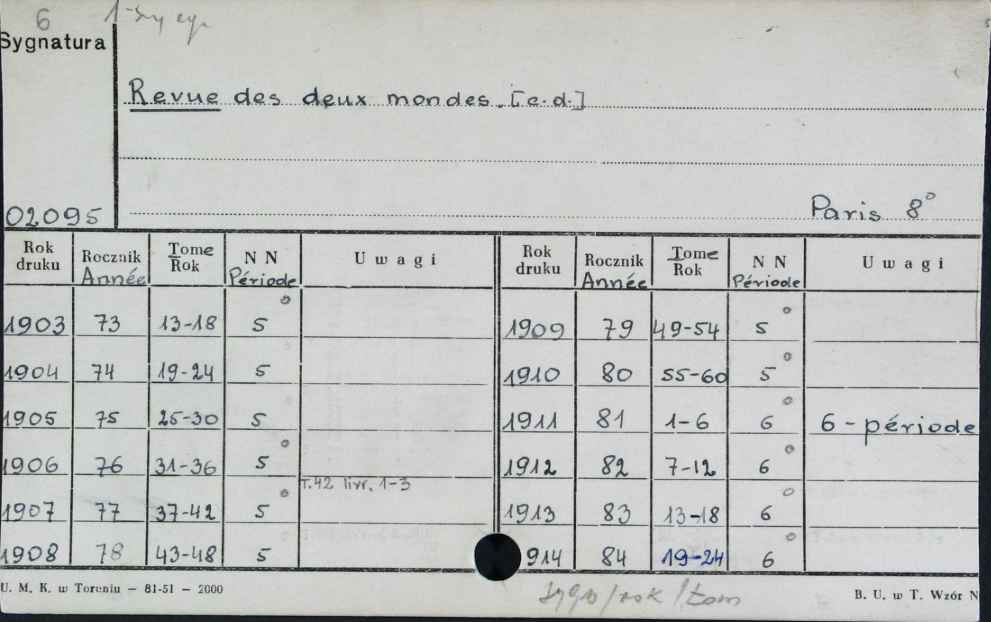 6
Sygnatura
Revue des deux mondes. [c.d.]
02095
Paris 8°
Rok druku Rocznik Année Tome Rok N N Période U w a g i Rok druku Rocznik Année Tome Rok N N Période U w a g i
1903 73 13-18 5° 1909 79 49-54 5°
1904 74 19-24 5 1910 80 55-60 5°
1905 75 25-30 5 1911 81 1-6 6° 6 - période
1906 76 31-36 5° 1912 82 7-12 6°
T.42 livr. 1-3
1907 77 37-42 5° 1913 83 13-18 6°
1908 78 43-48 5 914 84 19-24 6°
U. M. K. w Toruniu — 81-51 — 2000
B. U. w T. Wzór N